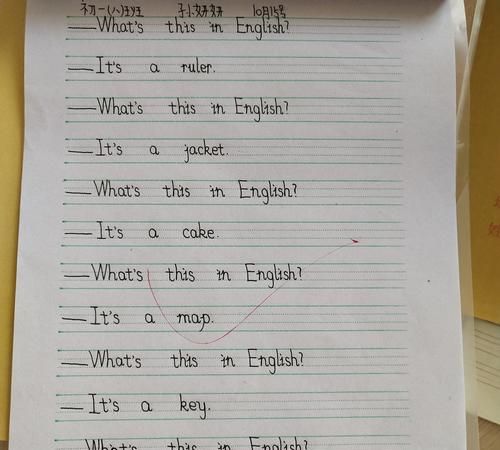 初一(八)班 孙妍妍 10月15号
—What's this in English?
—It's a ruler.
—What's this in English?
—It's a jacket.
—What's this in English?
—It's a cake.
—What's this in English?
—It's a map.
—What's this in English?
—It's a key.
—What's this in English?